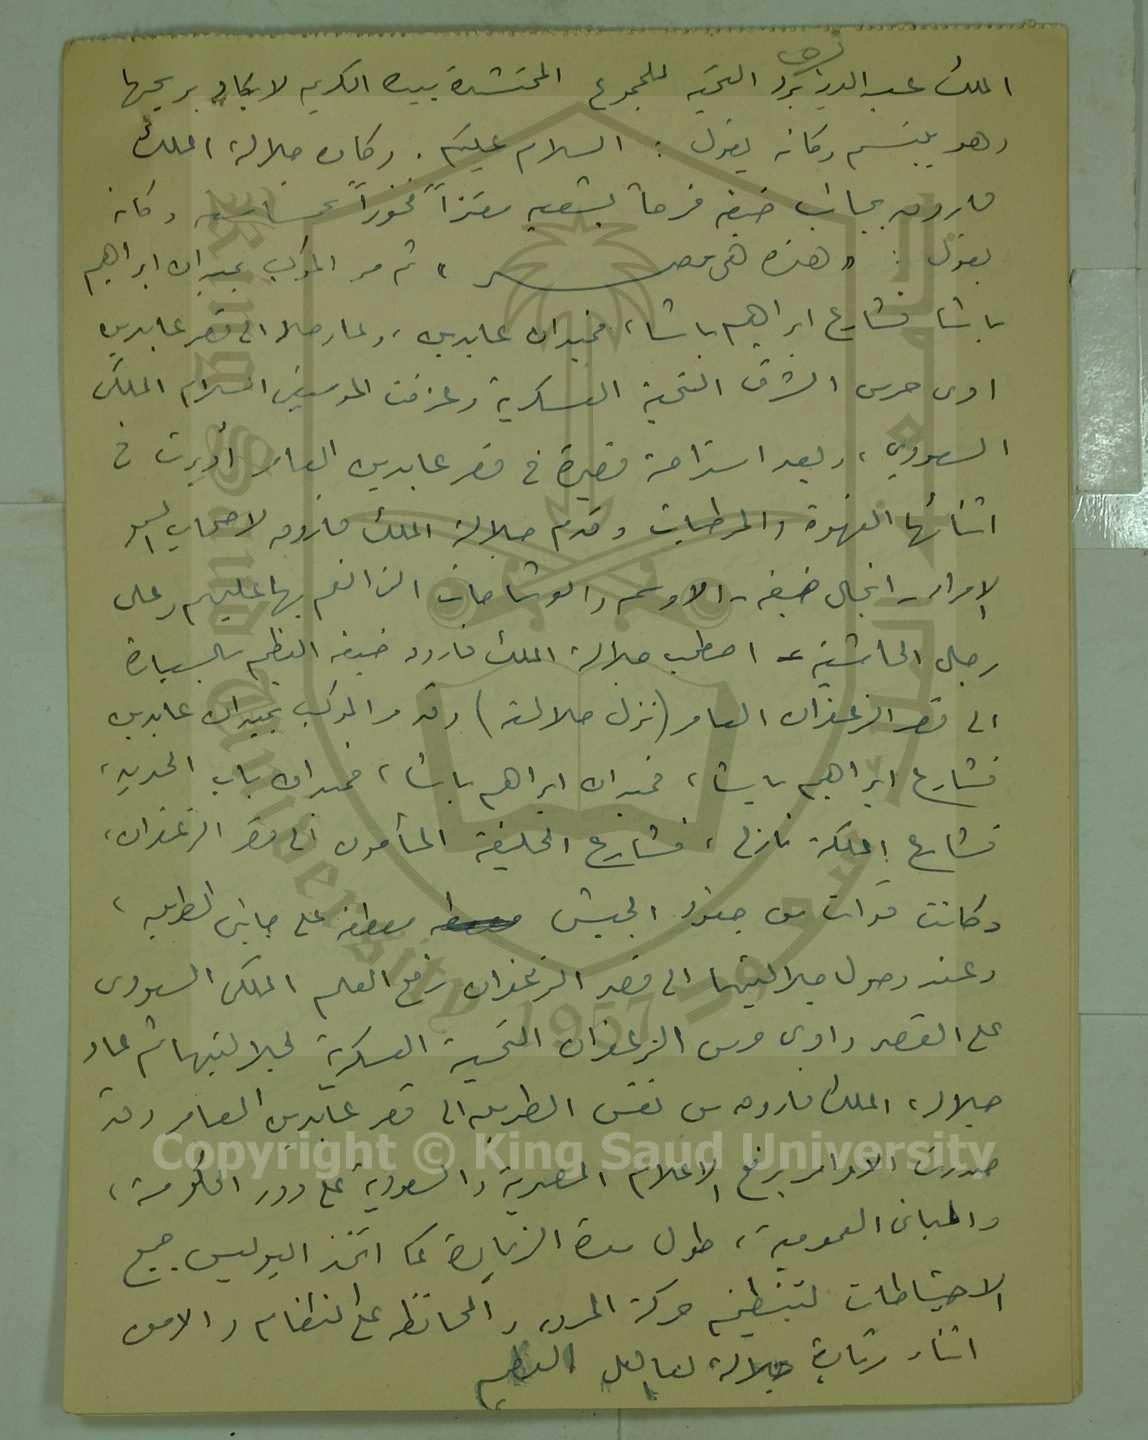 الملك عبد العزيز يرد التحية للجموع المحتشدة بيده الكريمه لا يكاد يريحها
وهو يبتسم وكأنه يقول : السلام عليكم . وكان جلالة الملك
فاروق بجانب ضيفه فرحاً بشعبه معتزاً فخوراً بحماسه وكأنه
يقول : « هذه هى مصـــــر » ثم مر الموكب بميدان ابراهيم
باشا فشارع ابراهيم باشا ، فميدان عابدين ، ولما وصلا الى قصر عابدين
ادى حرس الشرف التحية العسكرية وعزفت الموسيقى السلام الملكى
السعودي ، وبعد استراحة قصيرة فى قصر عابدين العامر أديرت فى
اثنائها القهوة والمرطبات وقدم جلالة الملك فاروق لاصحاب السمو
الامراء - انجال ضيفه - الاوسمه والوشاحات التى انعم بها عليهم وعلى
رجال الحاشية - اصطحب جلالة الملك فاروق ضيفه العظيم بالسيارة
الى قصر الزعفران العامر (نزل جلالته) وقد مر الموكب بميدان عابدين
فشارع ابراهيم باشا ، فميدان ابراهيم باشا ، فميدان باب الحديد ،
فشارع الملكة نازلى ، فشارع الخليفة المأمون الى قصر الزعفران ،
وكانت قوات من جنود الجيش مصطفة على جانبى الطريق ،
وعند وصول جلالتيهما الى قصر الزعفران رفع العلم الملكى السعودى
على القصر وادى حرس الزعفران التحية العسكرية لجلالتيهما ثم عاد
جلالة الملك فاروق من نفس الطريق الى قصر عابدين العامر وقد
صدرت الاوامر برفع الاعلام المصرية والسعودية على دور الحكومة ،
والمبانى العمومية ، طول مدة الزيارة كما اتخذ البوليس جميع
الاحتياطات لتنظيم حركة المرور والمحافظة على النظام والامن
اثناء زيارة جلالة العاهل العظيم
King Saud University 1957
Copyright © King Saud University